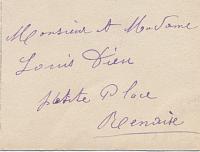 Monsieur et Madame
Louis Dieu
petite Place
Renaix